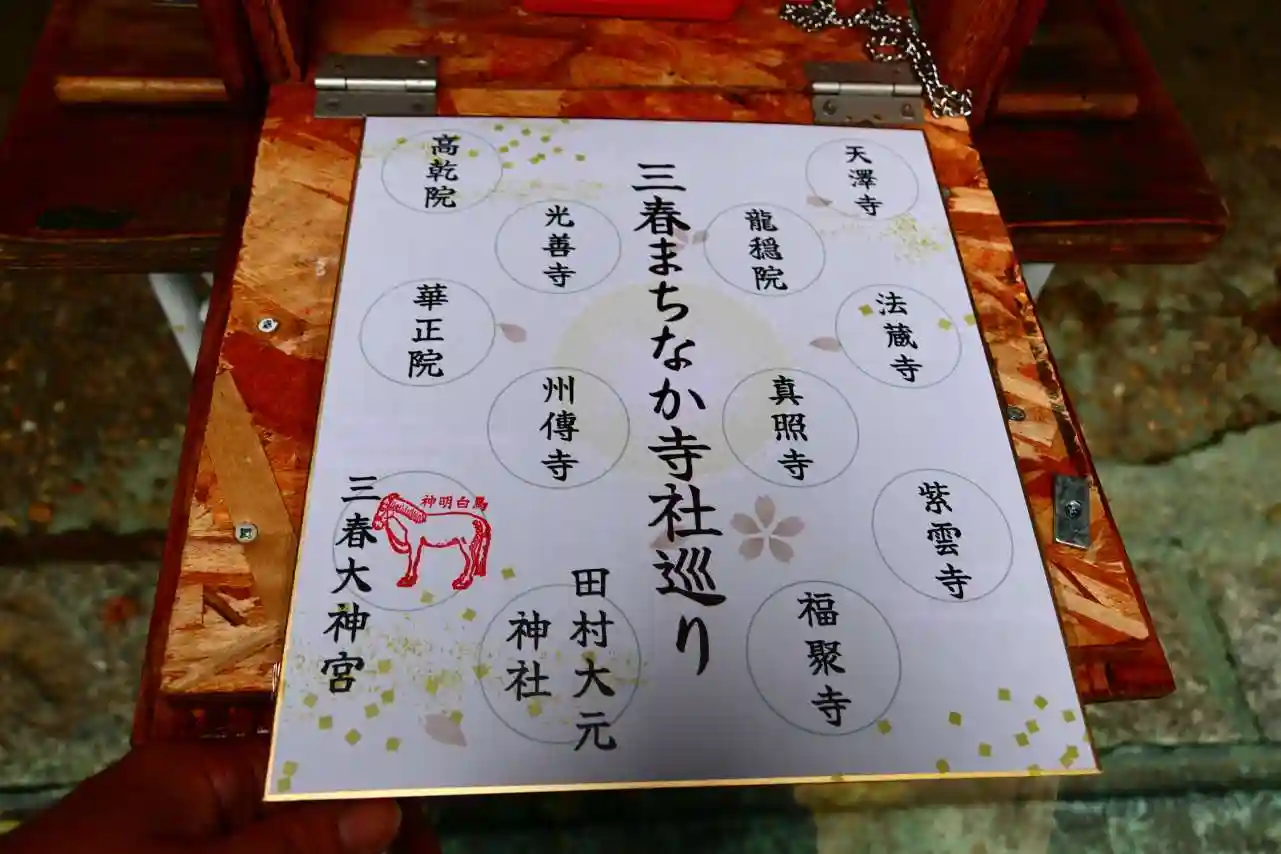 三春まちなか寺社巡り
天澤寺
龍穏院
法蔵寺
真照寺
紫雲寺
福聚寺
高乾院
光善寺
華正院
州傳寺
田村大元
神社
三春大神宮
神明白馬